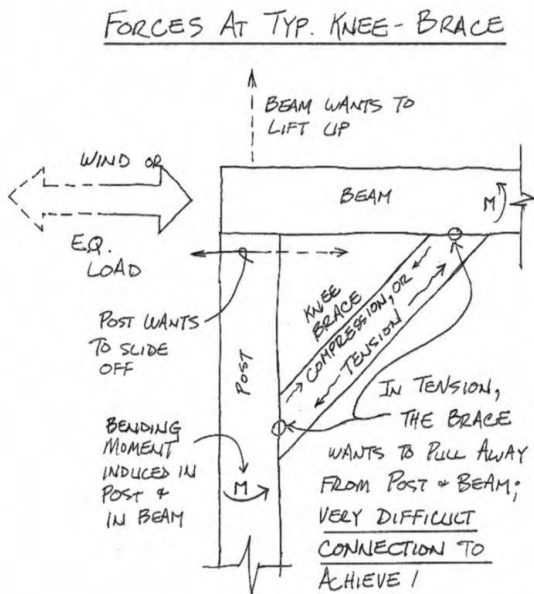 FORCES AT TYP. KNEE-BRACE
BEAM WANTS TO
LIFT UP
WIND OR
EQ.
LOAD
BEAM
M
POST WANTS
TO SLIDE
OFF
POST
KNEE
BRACE
COMPRESSION, OR
TENSION
BENDING
MOMENT
INDUCED IN
POST &
IN BEAM
M
IN TENSION,
THE BRACE
WANTS TO PULL AWAY
FROM POST & BEAM;
VERY DIFFICULT
CONNECTION TO
ACHIEVE!